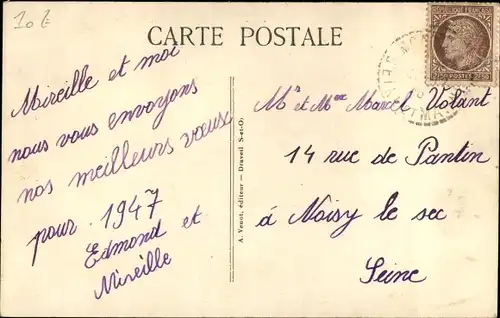 10 E
CARTE POSTALE
REPUBLIQUE FRANÇAISE
2F50 POSTES 2F50
Mireille et moi
nous vous envoyons
nos meilleurs vœux
pour 1947
Edmond et
Mireille
A. Venot, éditeur - Draveil S-et-O.
Mr et Mme Marcel Volant
14 rue de Pantin
à Noisy le sec
Seine